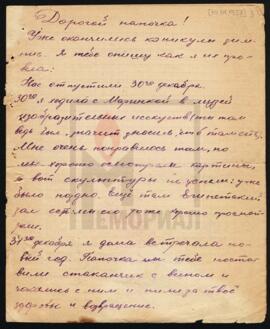 [10.01.1938] 3
Дорогой папочка!
Уже окончились каникулы зим-
ние. Я тебе опишу как я их про-
вела:
Нас отпустили 30го декабря.
30го я ходила с Маринкой в музей
изобразительных искусств (ты там
ведь был, значит знаешь, что там есть).
Мне очень понравилось там, но
мы хорошо осмотрели картины
а вот скульптуры не успели: уже
было поздно. Ещё там Египетский
зал мы его тоже хорошо просмот-
рели.
31го декабря я дома встречала но-
вый год. Папочка мы тебе поста-
вили стаканчик с вином и
чокались с ним и пили за твоё
здоровье и возвращение.
МЕМОРИАЛ